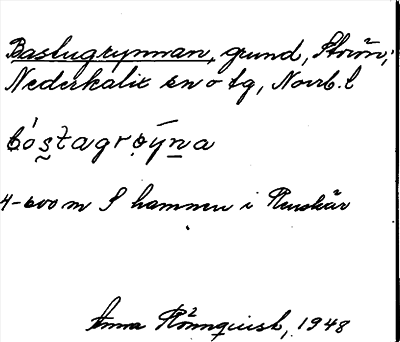 Bastugrynnan, grund, Strön,
Nederkalix sn o tg, Norrb. l
bos̱tagrɷýṉa
4-600 m S hamnen i Renskär
Anna Rönnquist, 1948